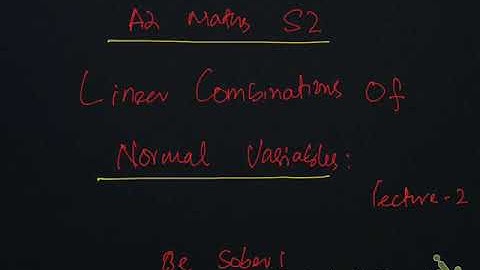 A2 Maths S2
Linear Combinations Of
Normal Variables:
lecture-2
Be Sober!